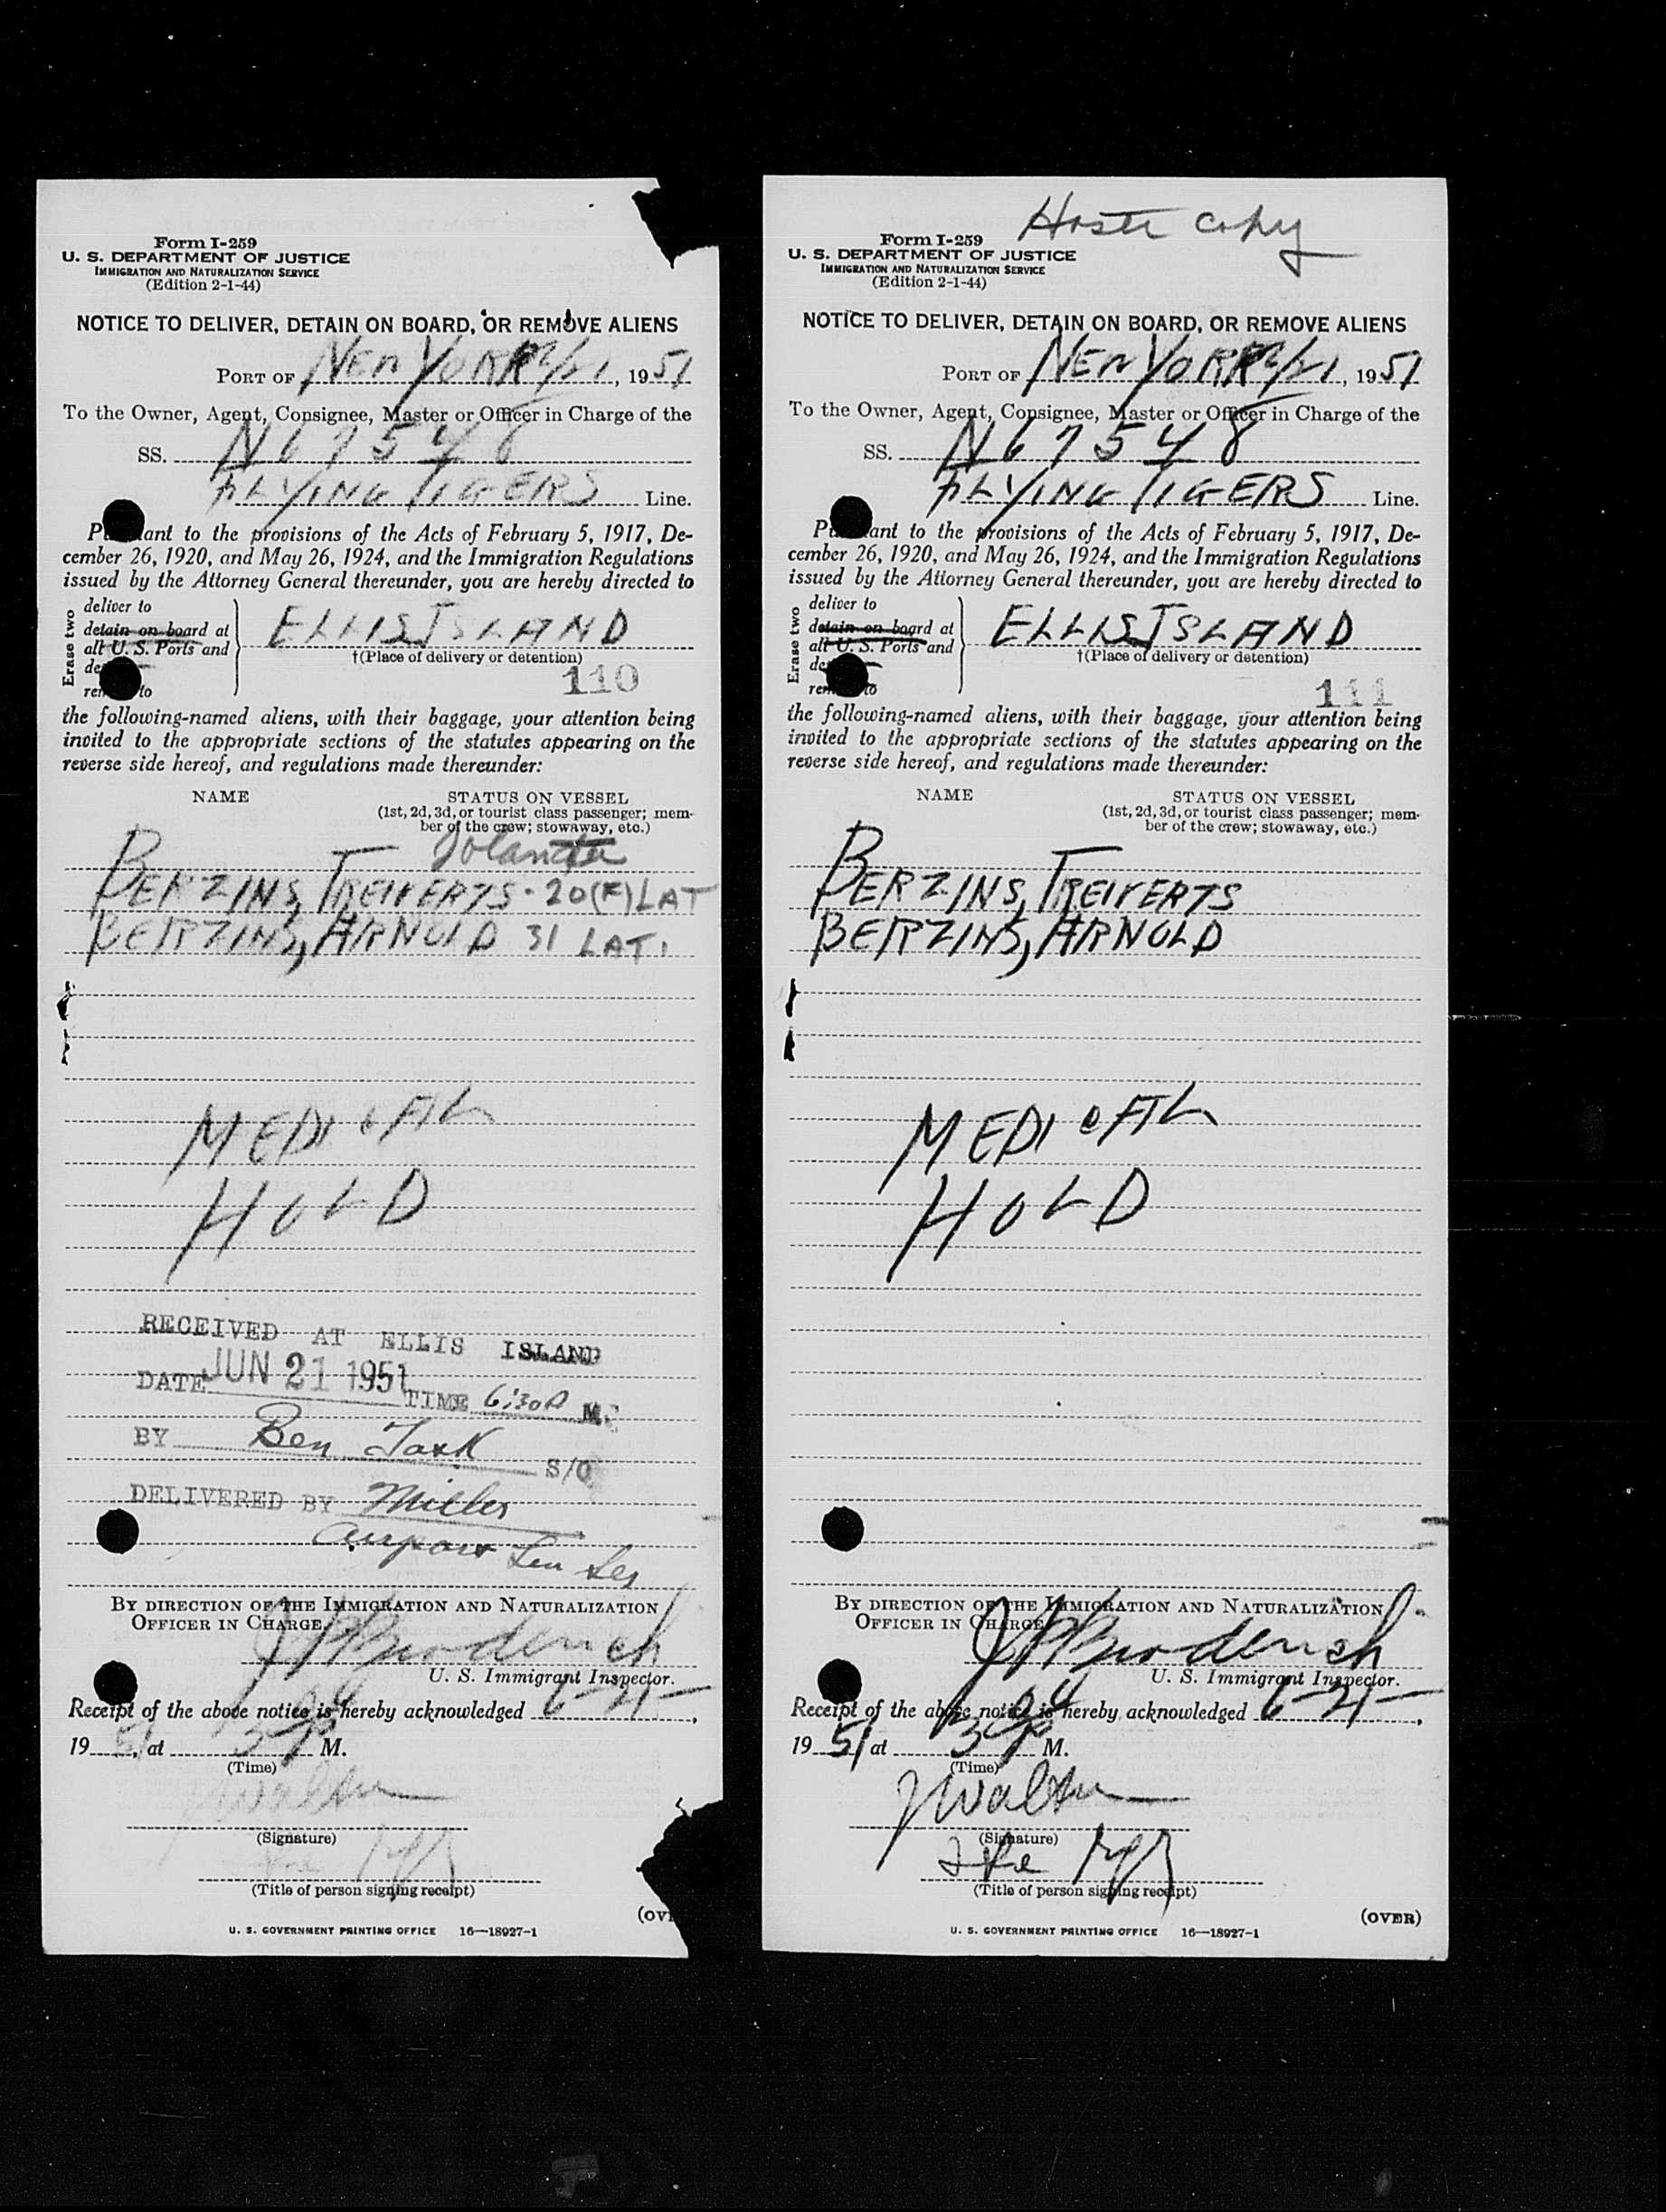 Form I-259
U. S. DEPARTMENT OF JUSTICE
IMMIGRATION AND NATURALIZATION SERVICE
(Edition 2-1-44)
NOTICE TO DELIVER, DETAIN ON BOARD, OR REMOVE ALIENS
PORT OF NEW YORK 6/21, 1951
To the Owner, Agent, Consignee, Master or Officer in Charge of the
SS. N67548
FLYING TIGERS Line.
P ant to the provisions of the Acts of February 5, 1917, De-
cember 26, 1920, and May 26, 1924, and the Immigration Regulations
issued by the Attorney General thereunder, you are hereby directed to
Erase two
deliver to
detain on board at
all U. S. Ports and
de
rem to
ELLIS ISLAND
†(Place of delivery or detention)
110
the following-named aliens, with their baggage, your attention being
invited to the appropriate sections of the statutes appearing on the
reverse side hereof, and regulations made thereunder:
NAME STATUS ON VESSEL
(1st, 2d, 3d, or tourist class passenger; mem-
ber of the crew; stowaway, etc.)
Jolanta
BERZINS, TREIVERTS - 20 (F) LAT
BERZINS, ARNOLD 31 LAT.
MEDICAL
HOLD
RECEIVED AT ELLIS ISLAND
DATE JUN 21 1951 TIME 6:30P M.
BY Ben Task
S/O
DELIVERED BY Miller
Airport
BY DIRECTION OF THE IMMIGRATION AND NATURALIZATION
OFFICER IN CHARGE.
U. S. Immigrant Inspector.
Receipt of the above notice is hereby acknowledged 6-21-,
1951, at 3 P M.
(Time)
J Walter
(Signature)
Mgr
(Title of person signing receipt)
(OV
U. S. GOVERNMENT PRINTING OFFICE 16—18927-1
Form I-259 Hosp copy
U. S. DEPARTMENT OF JUSTICE
IMMIGRATION AND NATURALIZATION SERVICE
(Edition 2-1-44)
NOTICE TO DELIVER, DETAIN ON BOARD, OR REMOVE ALIENS
PORT OF NEW YORK 6/21, 1951
To the Owner, Agent, Consignee, Master or Officer in Charge of the
SS. N67548
FLYING TIGERS Line.
Pu ant to the provisions of the Acts of February 5, 1917, De-
cember 26, 1920, and May 26, 1924, and the Immigration Regulations
issued by the Attorney General thereunder, you are hereby directed to
Erase two
deliver to
detain on board at
all U. S. Ports and
de
rem to
ELLIS ISLAND
†(Place of delivery or detention)
111
the following-named aliens, with their baggage, your attention being
invited to the appropriate sections of the statutes appearing on the
reverse side hereof, and regulations made thereunder:
NAME STATUS ON VESSEL
(1st, 2d, 3d, or tourist class passenger; mem-
ber of the crew; stowaway, etc.)
BERZINS, TREIVERTS
BERZINS, ARNOLD
MEDICAL
HOLD
BY DIRECTION OF THE IMMIGRATION AND NATURALIZATION
OFFICER IN CHARGE.
U. S. Immigrant Inspector.
Receipt of the above notice is hereby acknowledged 6-21-,
1951, at 3 P M.
(Time)
J Walter
(Signature)
Mgr
(Title of person signing receipt)
(OVER)
U. S. GOVERNMENT PRINTING OFFICE 16—18927-1